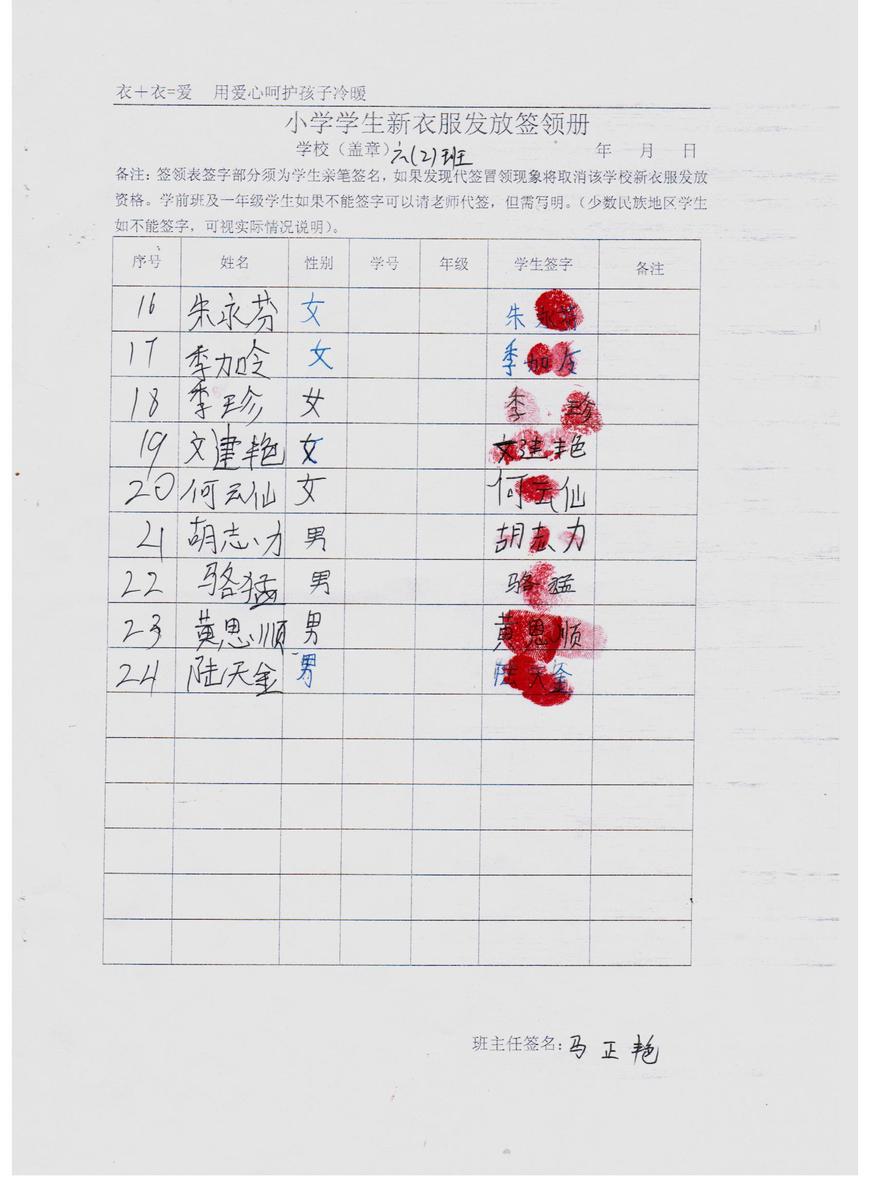 衣＋衣=爱 用爱心呵护孩子冷暖
小学学生新衣服发放签领册
学校（盖章）六(2)班 年 月 日
备注：签领表签字部分须为学生亲笔签名，如果发现代签冒领现象将取消该学校新衣服发放
资格。学前班及一年级学生如果不能签字可以请老师代签，但需写明。（少数民族地区学生
如不能签字，可视实际情况说明）。
序号 姓名 性别 学号 年级 学生签字 备注
16 朱永芬 女 朱永芬
17 季加吟 女 季加
18 季珍 女 季珍
19 文建艳 女 文建艳
20 何云仙 女 何云仙
21 胡志力 男 胡志力
22 骆猛 男 骆猛
23 黄思顺 男 黄恩顺
24 陆天金 男 陆天金
班主任签名：马正艳